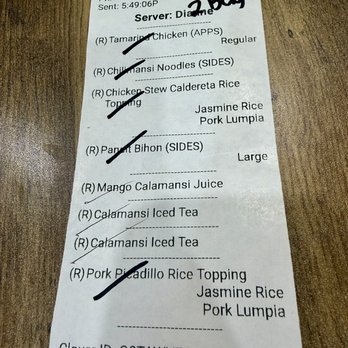 Sent: 5:49:06P
2 bag
Server: Dianne
(R) Tamarind Chicken (APPS)
Regular
(R) Chilimansi Noodles (SIDES)
(R) Chicken Stew Caldereta Rice
Topping
Jasmine Rice
Pork Lumpia
(R) Pancit Bihon (SIDES)
Large
(R) Mango Calamansi Juice
(R) Calamansi Iced Tea
(R) Calamansi Iced Tea
(R) Pork Picadillo Rice Topping
Jasmine Rice
Pork Lumpia